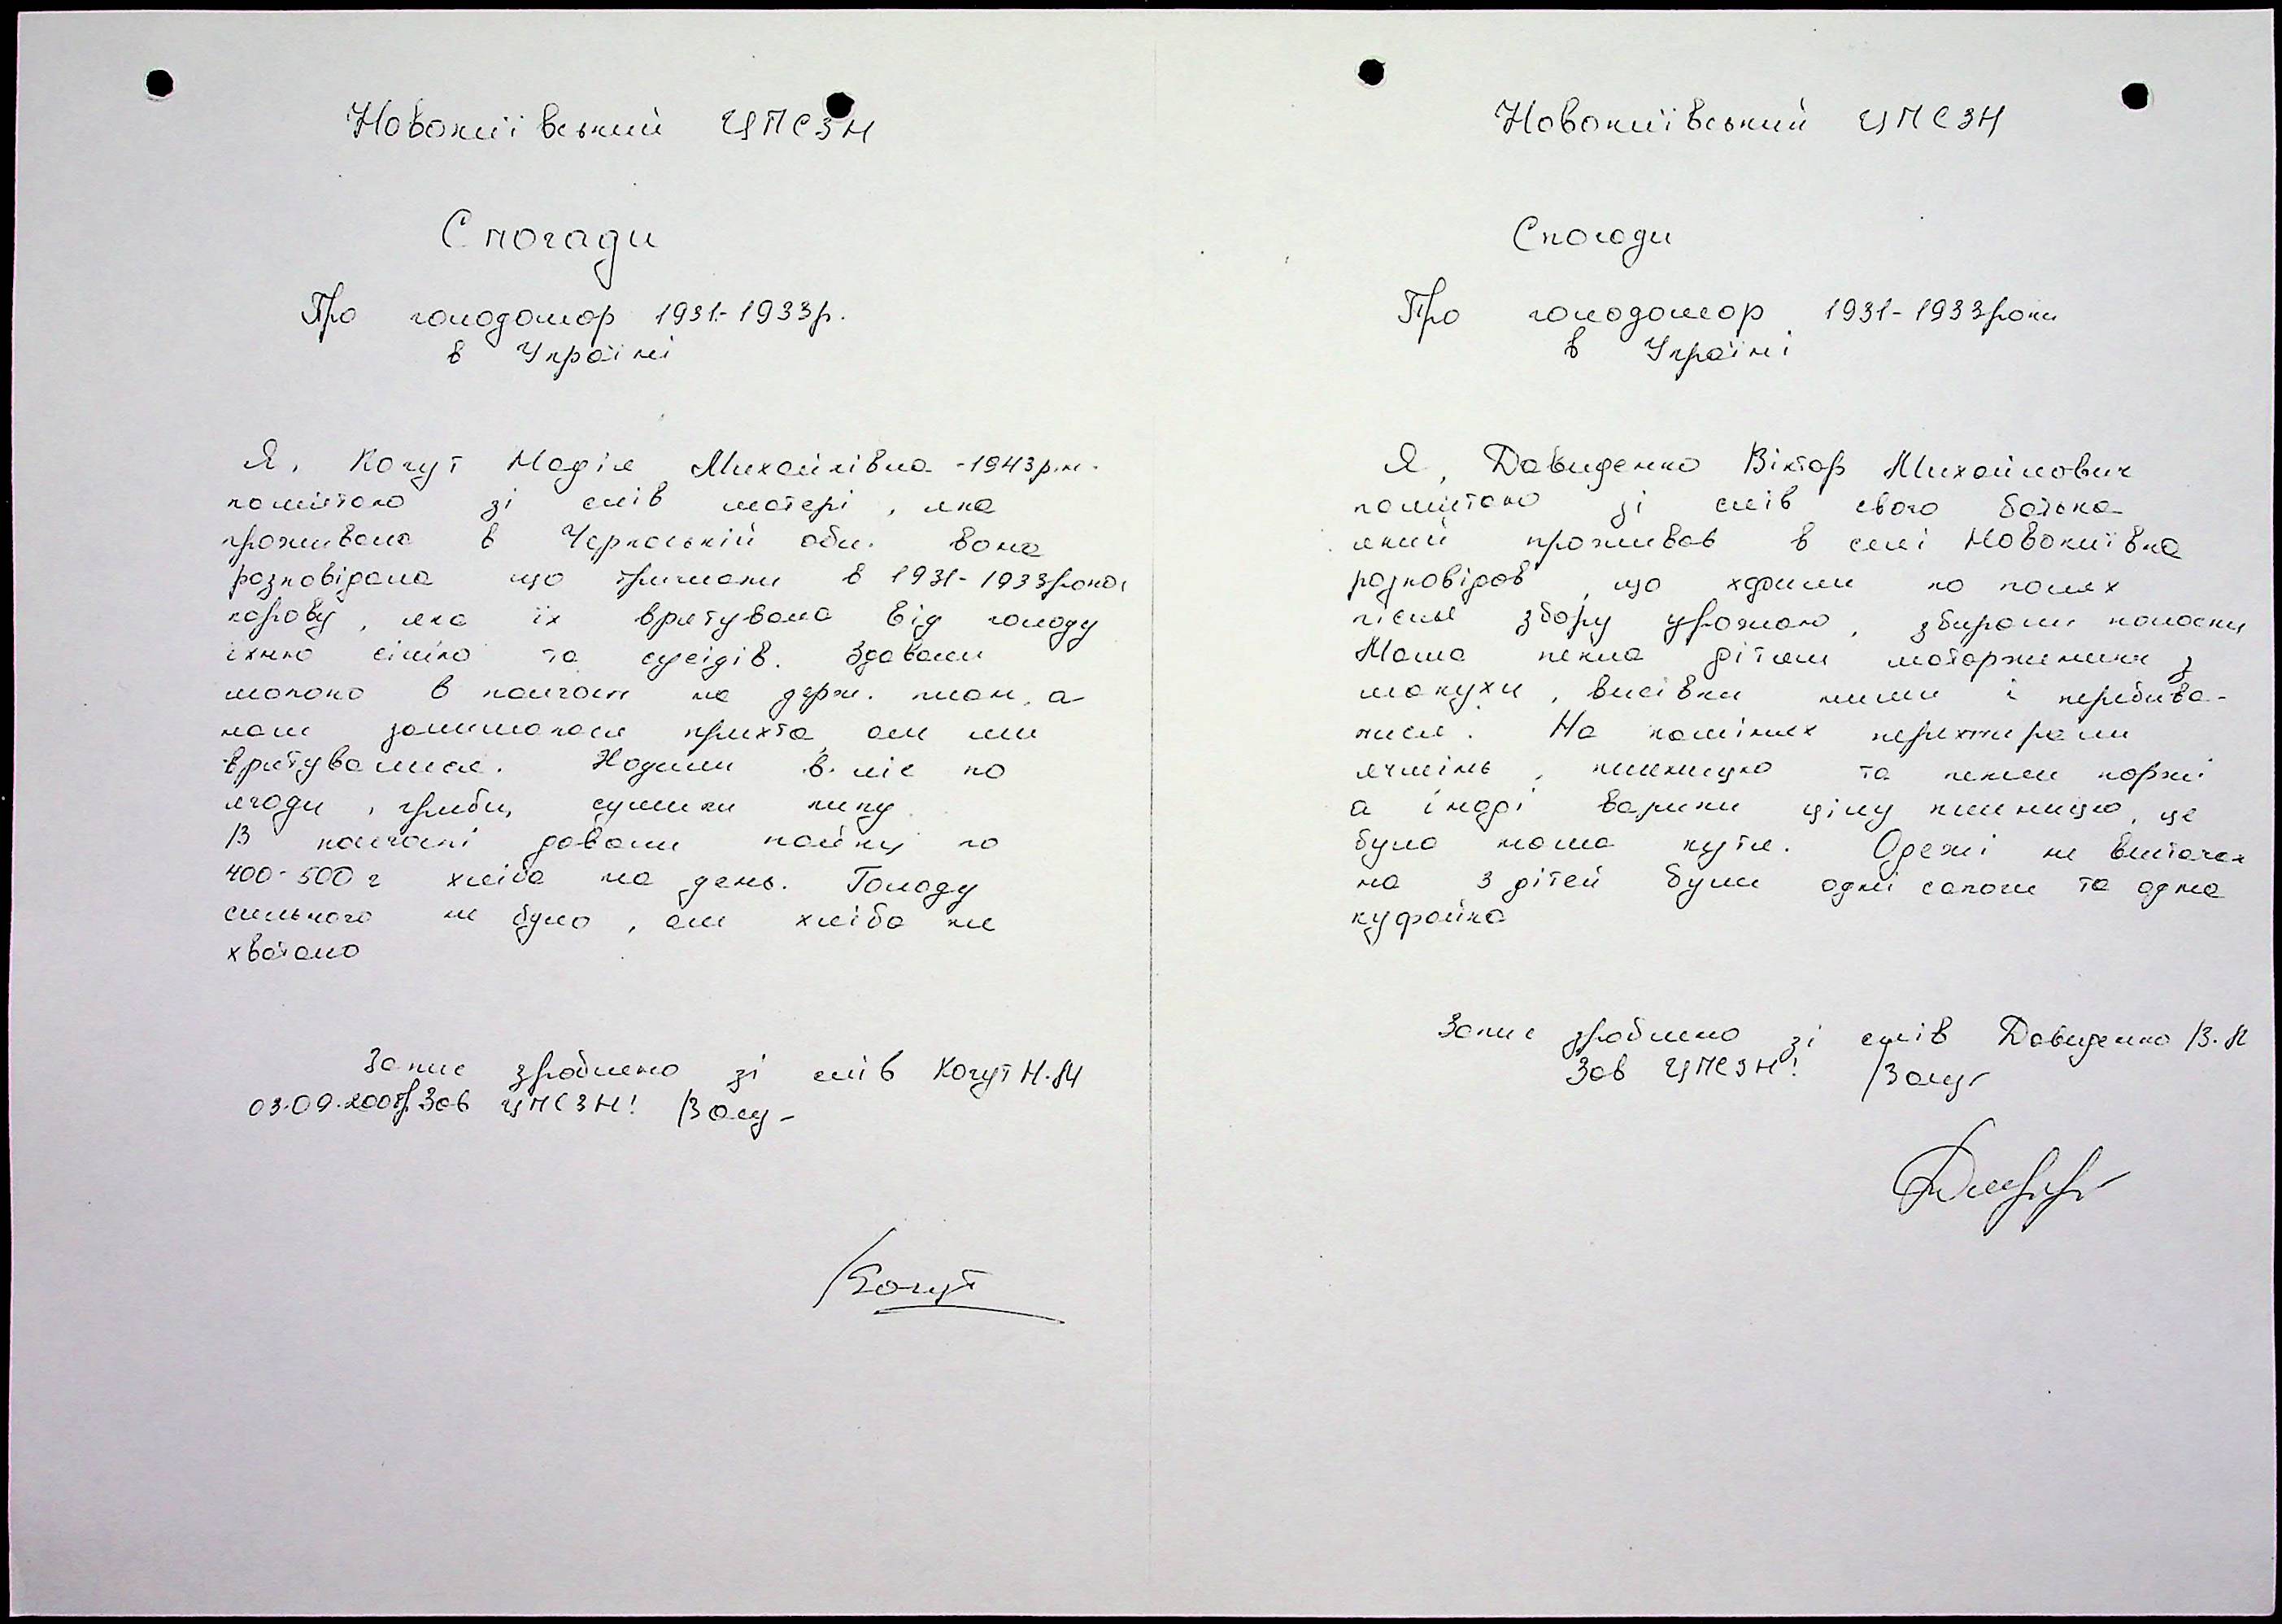 Новокиївський ЦПСЗН
Спогади
Про голодомор 1931-1933р.
в Україні
Я, Когут Надія Михайлівна -1943р.н.
помятаю зі слів матері, яка
проживала в Черкаській обл. Вона
розповідала що тримали в 1931-1933роках
корову, яка їх врятувала від голоду
їхню сімію та сусідів. Здавали
молоко в колгосп на держ. план, а
нам залишалося крихта, але ми
врятувалися. Ходили в ліс по
ягоди, гриби, сушили липу.
В колгоспі давали пайку по
400-500 г хліба на день. Голоду
сильного не було, але хліба не
хватало
Запис зроблено зі слів Когут Н.М
03.09.200 Зав ЦПСЗН!
Когут
Новокиївський ЦПСЗН
Спогади
Про голодомор 1931-1933роки
в Україні
Я, Давиденко Віктор Михайлович
помятаю зі слів свого батька
який проживав в селі Новокиївка
розповідав, що ходили по полях
після збору урожаю, збирали колоски
Мама пекла дітям маторженики з
макухи, висівки ними і перебива-
лися. На камінях перетирали
ячмінь, пшеницю та пекли коржі
а іноді варили цілу пшеницю, це
було наша кутя. Одежі не вистачал
на 3 дітей були одні сапоги та одна
куфайка
Запис зроблено зі слів Давиденко В.М
Зав ЦПСЗН!